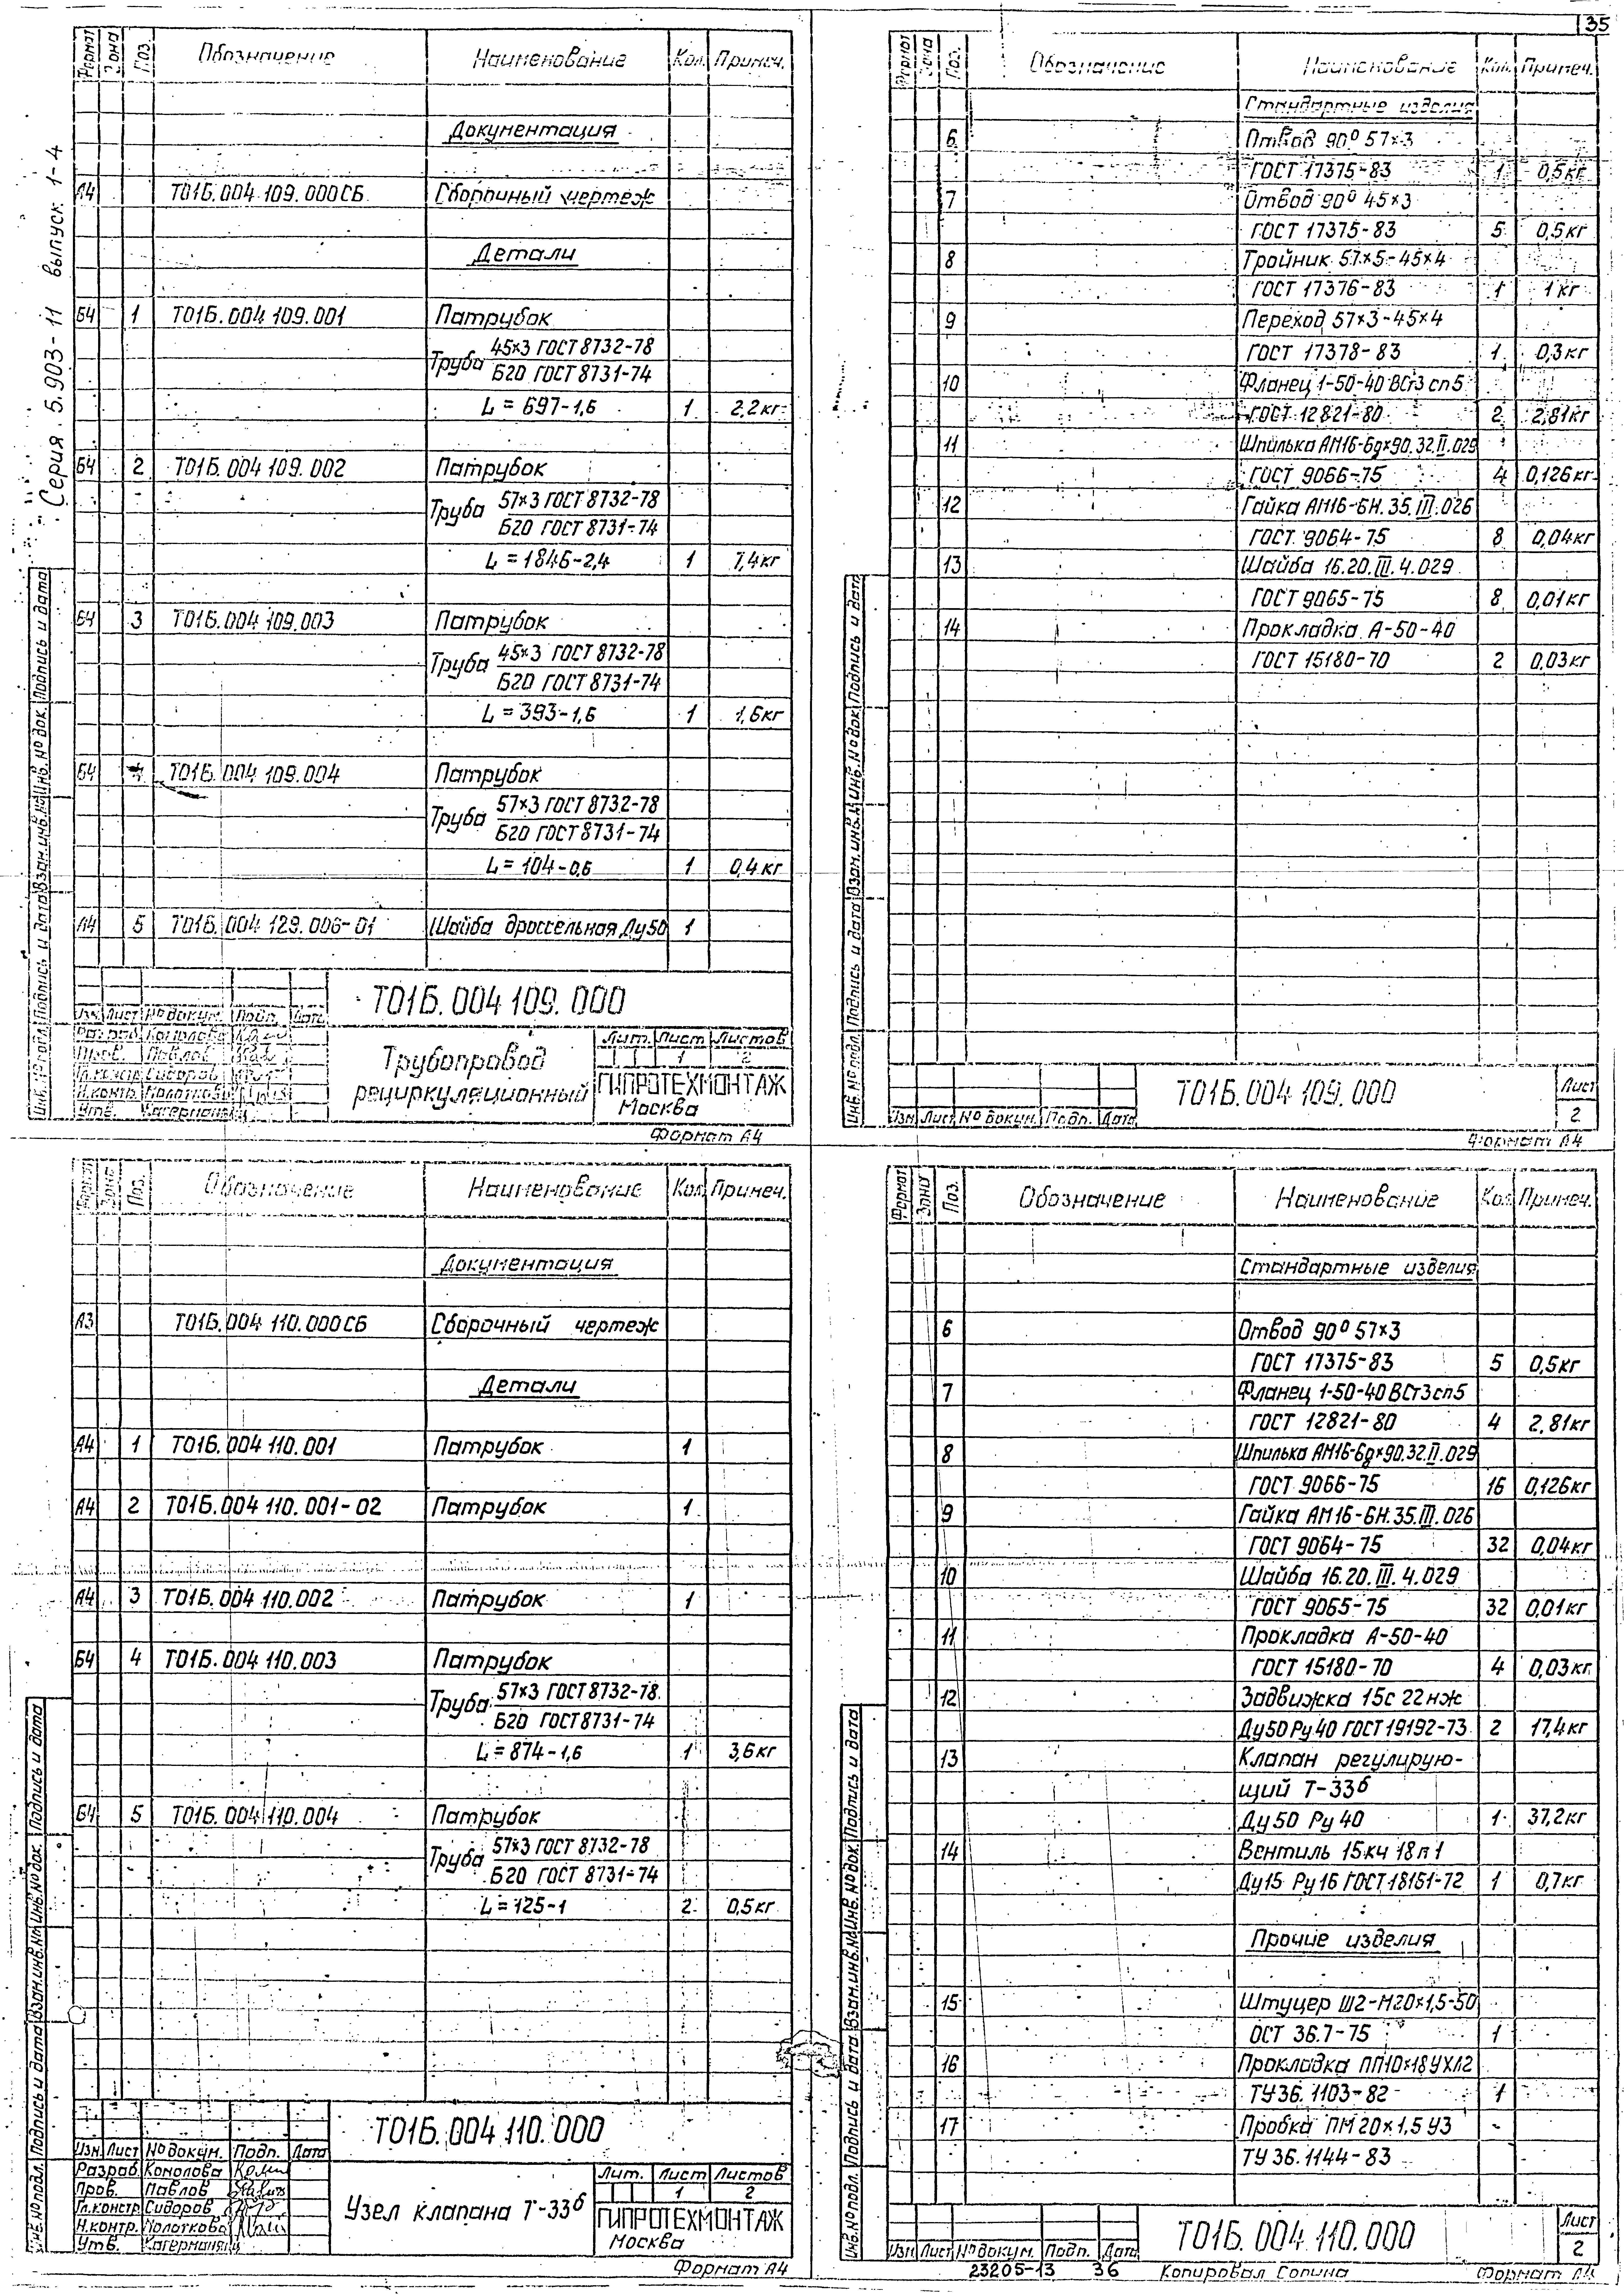 35
Серия 5.903-11 выпуск 1-4
Формат Зона Поз. Обозначение Наименование Кол. Примеч.
Документация
А4 Т01Б.004 109.000СБ Сборочный чертеж
Детали
Б4 1 Т01Б.004 109.001 Патрубок
Труба 45×3 ГОСТ 8732-78
Б20 ГОСТ 8731-74
L = 697-1,6 1 2,2кг
Б4 2 Т01Б.004 109.002 Патрубок
Труба 57×3 ГОСТ 8732-78
Б20 ГОСТ 8731-74
L = 1846-2,4 1 7,4кг
Б4 3 Т01Б.004 109.003 Патрубок
Труба 45×3 ГОСТ 8732-78
Б20 ГОСТ 8731-74
L = 393-1,6 1 1,6кг
Б4 4 Т01Б.004 109.004 Патрубок
Труба 57×3 ГОСТ 8732-78
Б20 ГОСТ 8731-74
L = 104-0,6 1 0,4кг
А4 5 Т01Б.004 129.006-01 Шайба дроссельная Ду50 1
Инв.№подл. Подпись и дата Взам.инв.№ Инв.№док. Подпись и дата
Т01Б.004 109.000
Изм. Лист №докум. Подп. Дата
Разраб. Конолова
Пров. Павлов
Гл.констр. Сидоров
Н.контр. Молоткова
Утв.
Трубопровод
рециркуляционный
Лит. Лист Листов
1 2
ГИПРОТЕХМОНТАЖ
Москва
Формат А4
Формат Зона Поз. Обозначение Наименование Кол. Примеч.
Стандартные изделия
6 Отвод 90° 57×3
ГОСТ 17375-83 1 0,5кг
7 Отвод 90° 45×3
ГОСТ 17375-83 5 0,5кг
8 Тройник 57×5-45×4
ГОСТ 17376-83 1 1кг
9 Переход 57×3-45×4
ГОСТ 17378-83 1 0,3кг
10 Фланец 1-50-40 ВСт3сп5
ГОСТ 12821-80 2 2,81кг
11 Шпилька АМ16-6g×90.32.II.029
ГОСТ 9066-75 4 0,126кг
12 Гайка АМ16-6Н.35.III.026
ГОСТ 9064-75 8 0,04кг
13 Шайба 16.20.III.4.029
ГОСТ 9065-75 8 0,01кг
14 Прокладка А-50-40
ГОСТ 15180-70 2 0,03кг
Инв.№подл. Подпись и дата Взам.инв.№ Инв.№док. Подпись и дата
Изм. Лист №докум. Подп. Дата
Т01Б.004 109.000
Лист
2
Формат А4
Формат Зона Поз. Обозначение Наименование Кол. Примеч.
Документация
А3 Т01Б.004 110.000СБ Сборочный чертеж
Детали
А4 1 Т01Б.004 110.001 Патрубок 1
А4 2 Т01Б.004 110.001-02 Патрубок 1
А4 3 Т01Б.004 110.002 Патрубок 1
Б4 4 Т01Б.004 110.003 Патрубок
Труба 57×3 ГОСТ 8732-78
Б20 ГОСТ 8731-74
L = 874-1,6 1 3,6кг
Б4 5 Т01Б.004 110.004 Патрубок
Труба 57×3 ГОСТ 8732-78
Б20 ГОСТ 8731-74
L = 125-1 2 0,5кг
Инв.№подл. Подпись и дата Взам.инв.№ Инв.№док. Подпись и дата
Т01Б.004 110.000
Изм. Лист №докум. Подп. Дата
Разраб. Конолова
Пров. Павлов
Гл.констр. Сидоров
Н.контр. Молоткова
Утв.
Узел клапана Т-33б
Лит. Лист Листов
1 2
ГИПРОТЕХМОНТАЖ
Москва
Формат А4
Формат Зона Поз. Обозначение Наименование Кол. Примеч.
Стандартные изделия
6 Отвод 90° 57×3
ГОСТ 17375-83 5 0,5кг
7 Фланец 1-50-40 ВСт3сп5
ГОСТ 12821-80 4 2,81кг
8 Шпилька АМ16-6g×90.32.II.029
ГОСТ 9066-75 16 0,126кг
9 Гайка АМ16-6Н.35.III.026
ГОСТ 9064-75 32 0,04кг
10 Шайба 16.20.III.4.029
ГОСТ 9065-75 32 0,01кг
11 Прокладка А-50-40
ГОСТ 15180-70 4 0,03кг
12 Задвижка 15с 22нж
Ду50 Ру40 ГОСТ 19192-73 2 17,4кг
13 Клапан регулирую-
щий Т-33б
Ду50 Ру40 1 37,2кг
14 Вентиль 15кч 18п1
Ду15 Ру16 ГОСТ 18161-72 1 0,7кг
Прочие изделия
15 Штуцер Ш2-М20×1,5-50
ОСТ 36.7-75 1
16 Прокладка ПП10×18УХЛ2
ТУ36.1103-82 1
17 Пробка ПМ20×1,5 У3 -
ТУ 36.1144-83
Инв.№подл. Подпись и дата Взам.инв.№ Инв.№док. Подпись и дата
Изм. Лист №докум. Подп. Дата
Т01Б.004 110.000
Лист
2
23205-13 36 Копировал Формат А4